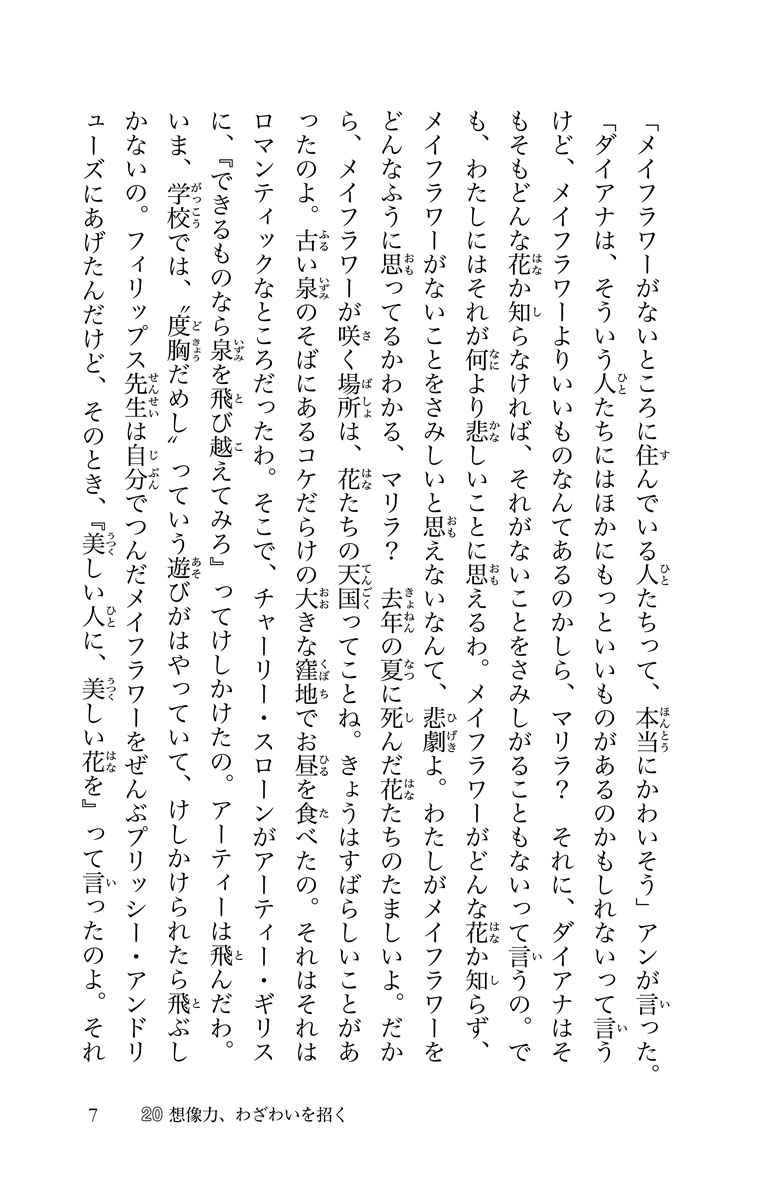 「メイフラワーがないところに住んでいる人たちって、本当にかわいそう」アンが言った。
「ダイアナは、そういう人たちにはほかにもっといいものがあるのかもしれないって言う
けど、メイフラワーよりいいものなんてあるのかしら、マリラ？　それに、ダイアナはそ
もそもどんな花か知らなければ、それがないことをさみしがることもないって言うの。で
も、わたしにはそれが何より悲しいことに思えるわ。メイフラワーがどんな花か知らず、
メイフラワーがないことをさみしいと思えないなんて、悲劇よ。わたしがメイフラワーを
どんなふうに思ってるかわかる、マリラ？　去年の夏に死んだ花たちのたましいよ。だか
ら、メイフラワーが咲く場所は、花たちの天国ってことね。きょうはすばらしいことがあ
ったのよ。古い泉のそばにあるコケだらけの大きな窪地でお昼を食べたの。それはそれは
ロマンティックなところだったわ。そこで、チャーリー・スローンがアーティー・ギリス
に、『できるものなら泉を飛び越えてみろ』ってけしかけたの。アーティーは飛んだわ。
いま、学校では、〝度胸だめし〟っていう遊びがはやっていて、けしかけられたら飛ぶし
かないの。フィリップス先生は自分でつんだメイフラワーをぜんぶプリッシー・アンドリ
ューズにあげたんだけど、そのとき、『美しい人に、美しい花を』って言ったのよ。それ
7　⑳ 想像力、わざわいを招く